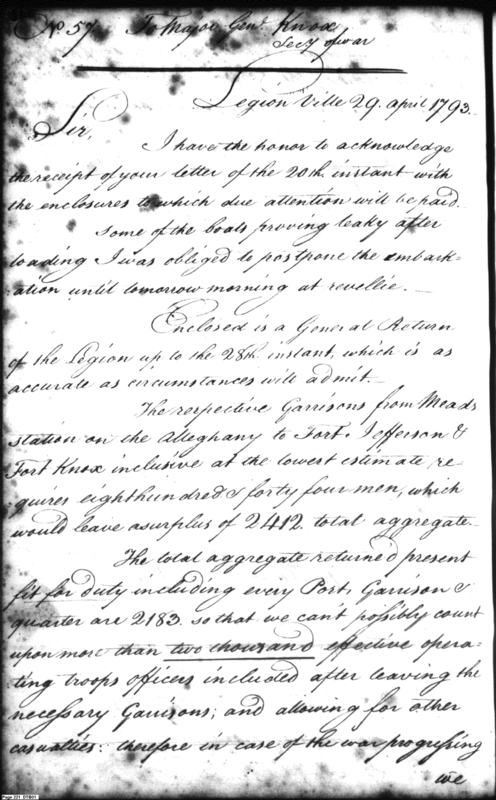 No 57. To Major Genl. Knox
Secy of war
Legion Ville 29. april 1793.
Sir,
I have the honor to acknowledge
the receipt of your letter of the 20th. instant with
the enclosures to which due attention will be paid.
Some of the boats proving leaky after
loading I was obliged to postpone the embark-
ation until tomorrow morning at revellie. —
Enclosed is a General Return
of the Legion up to the 28th. instant, which is as
accurate as circumstances will admit. —
The respective Garrisons from Meads
station on the Alleghany to Fort Jefferson &
Fort Knox inclusive at the lowest estimate, re-
quires eight hundred & forty four men, which
would leave a surplus of 2412. total aggregate —
The total aggregate returned present
fit for duty including every Post, Garrison &
quarter are 2183. so that we can't possibly count
upon more than two thousand effective opera-
ting troops officers included after leaving the
necessary Garrisons; and allowing for other
casualties: therefore in case of the war progressing
we